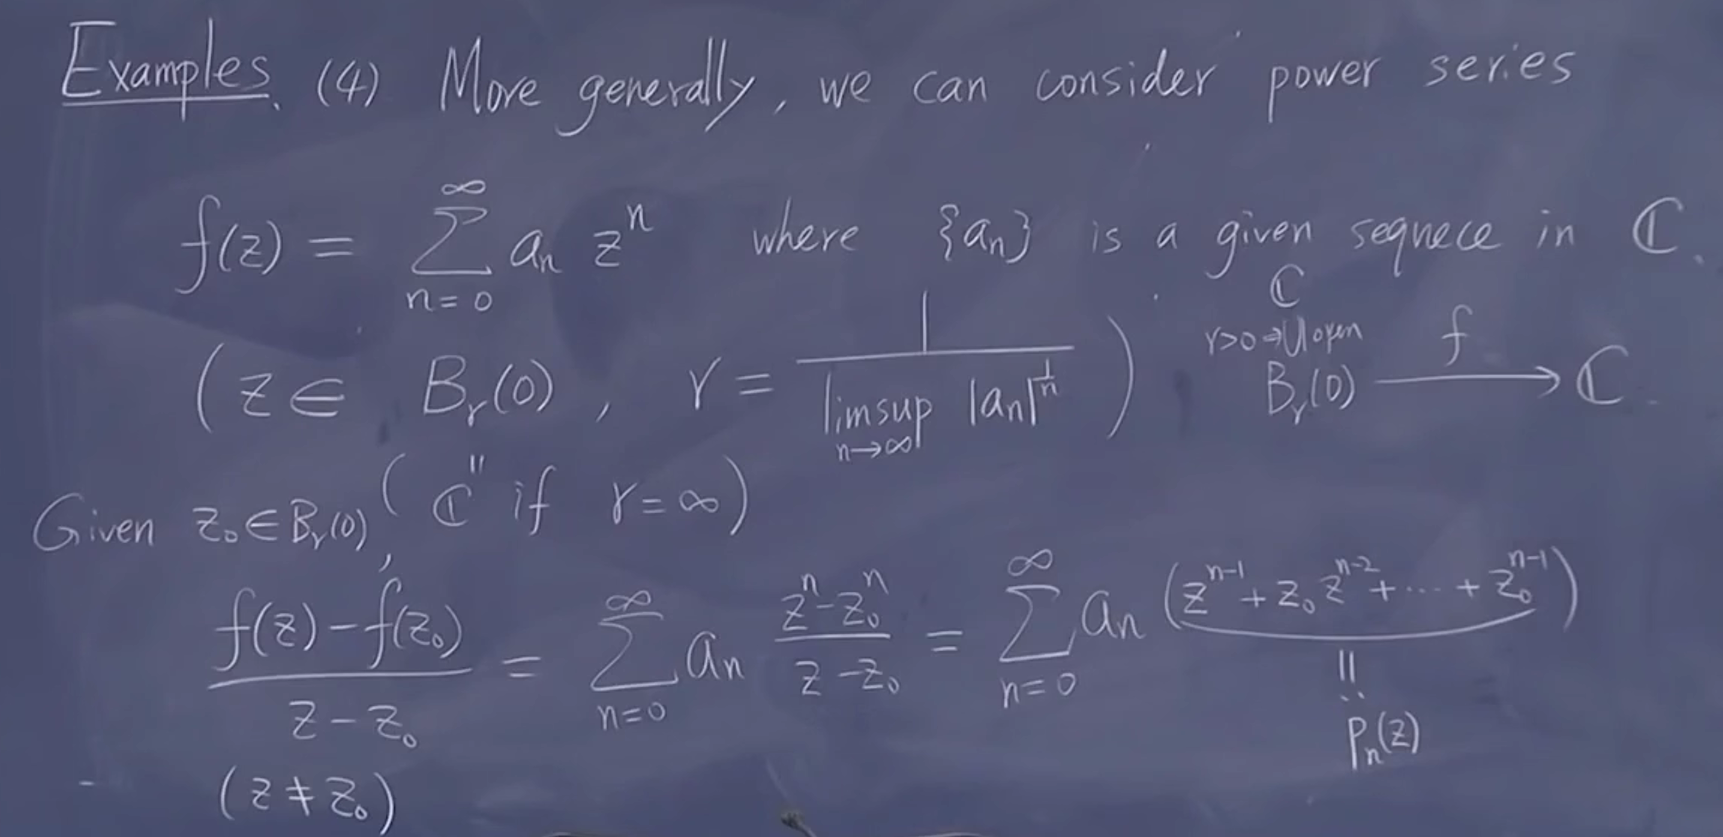 Examples. (4) More generally, we can consider power series
f(z) = ∑_{n=0}^{∞} a_n z^n where {a_n} is a given sequece in ℂ.
(z ∈ B_r(0), r = 1 / limsup_{n→∞} |a_n|^{1/n})
ℂ
r>0 ⇒ ∪| open
B_r(0) —f→ ℂ.
(ℂ if r = ∞)
Given z_0 ∈ B_r(0),
(f(z) − f(z_0)) / (z − z_0) = ∑_{n=0}^{∞} a_n (z^n − z_0^n) / (z − z_0) = ∑_{n=0}^{∞} a_n (z^{n-1} + z_0 z^{n-2} + ⋯ + z_0^{n-1})
(z ≠ z_0)
=: P_n(z)